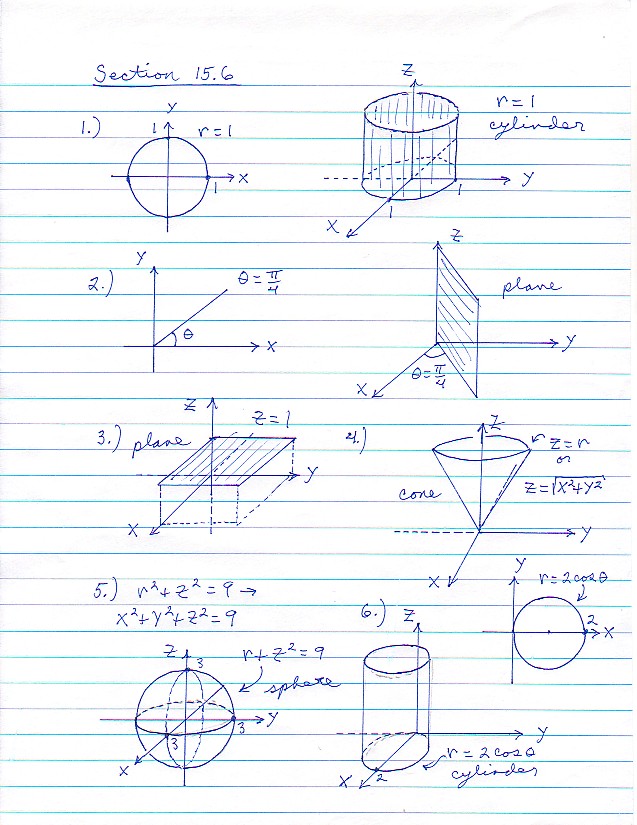 Section 15.6
1.) Y 1 r=1 X 1
Z r=1
cylinder
Y 1 1 X
2.) Y θ=π/4 θ X
Z plane Y θ=π/4 X
3.) plane Z Z=1 Y X
4.) Z Z=r
or
Z=√X²+Y²
cone Y X
5.) r²+z²=9 →
X²+Y²+Z²=9
Z 3 r+z²=9
sphere
Y 3 3 X
6.) Z Y X 2
Y r=2cosθ
2 X
r=2cosθ
cylinder